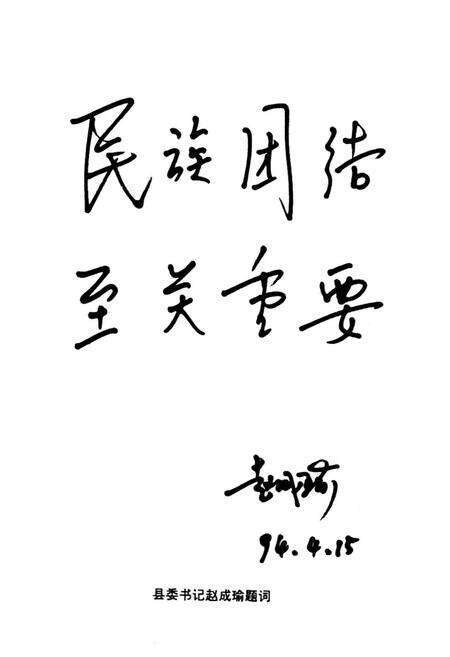 民族团结
至关重要
赵成瑜
94.4.15
县委书记赵成瑜题词